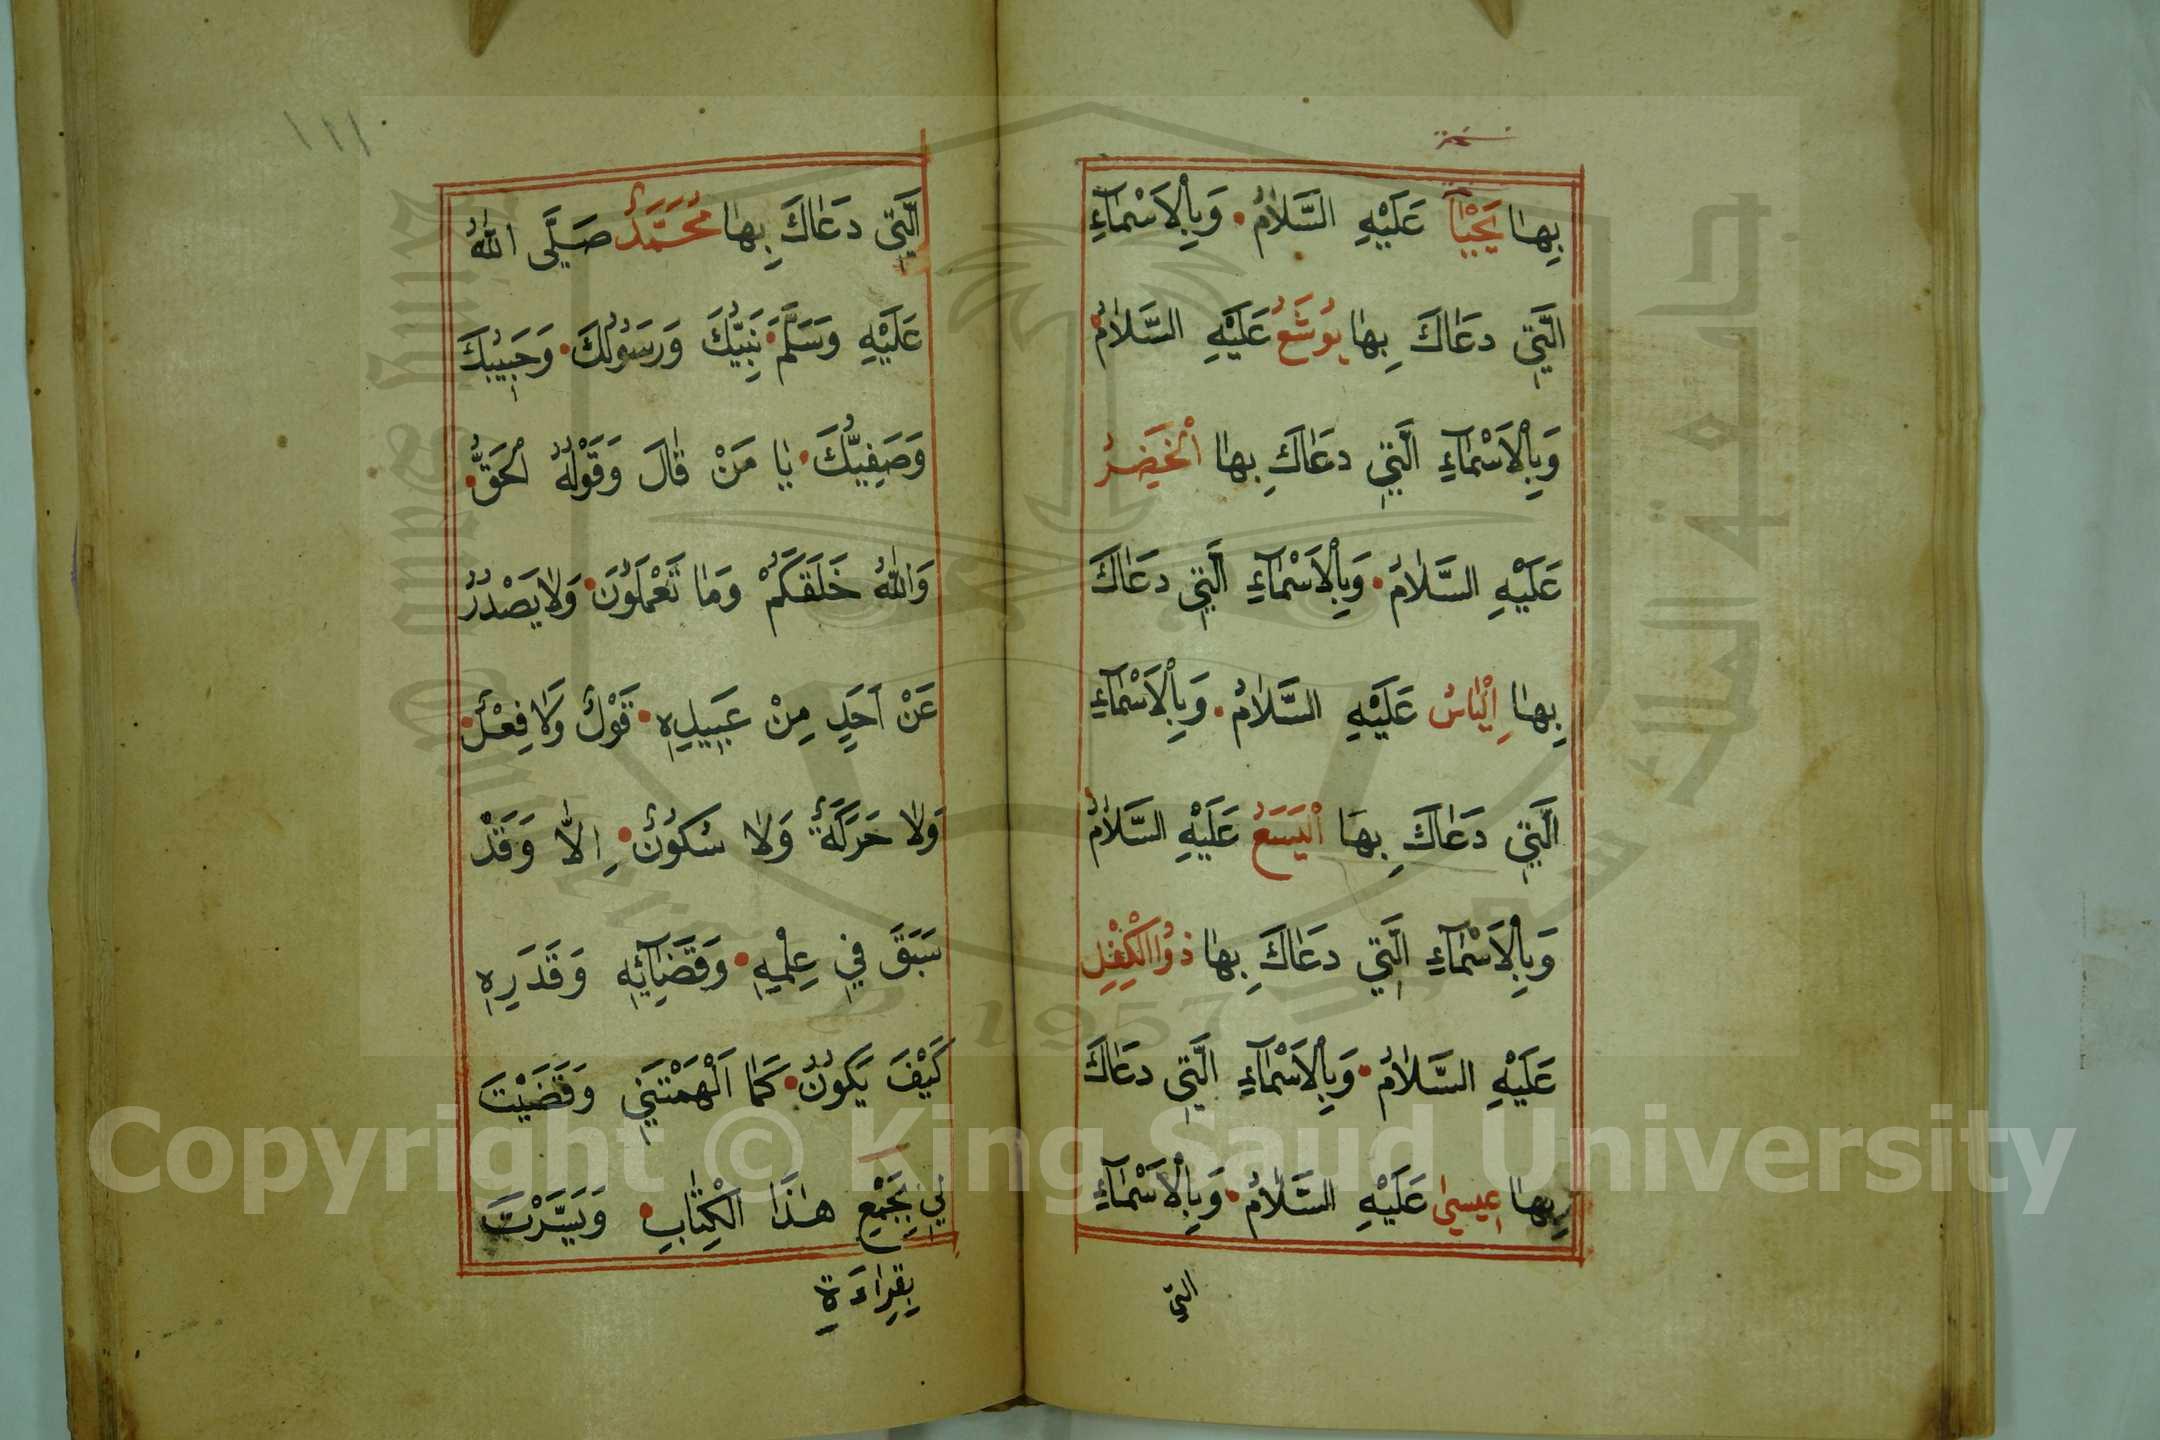 بِهَا يَحْيَا عَلَيْهِ السَّلَامُ • وَبِالْاَسْمَآءِ
الَّتِي دَعَاكَ بِهَا يُوشَعُ عَلَيْهِ السَّلَامُ •
وَبِالْاَسْمَآءِ الَّتِي دَعَاكَ بِهَا الْخَضِرُ
عَلَيْهِ السَّلَامُ • وَبِالْاَسْمَآءِ الَّتِي دَعَاكَ
بِهَا اِلْيَاسُ عَلَيْهِ السَّلَامُ • وَبِالْاَسْمَآءِ
الَّتِي دَعَاكَ بِهَا الْيَسَعُ عَلَيْهِ السَّلَامُ
وَبِالْاَسْمَآءِ الَّتِي دَعَاكَ بِهَا ذُوالْكِفْلِ
عَلَيْهِ السَّلَامُ • وَبِالْاَسْمَآءِ الَّتِي دَعَاكَ
بِهَا عِيسٰى عَلَيْهِ السَّلَامُ • وَبِالْاَسْمَآءِ
التي
١١١
الَّتِي دَعَاكَ بِهَا مُحَمَّدٌ صَلَّى اللهُ
عَلَيْهِ وَسَلَّمَ • نَبِيُّكَ وَرَسُولُكَ • وَحَبِيبُكَ
وَصَفِيُّكَ • يَا مَنْ قَالَ وَقَوْلُهُ الْحَقُّ •
وَاللهُ خَلَقَكُمْ وَمَا تَعْمَلُونَ • وَلَا يَصْدُرُ
عَنْ اَحَدٍ مِنْ عَبِيدِهِ • قَوْلٌ وَلَا فِعْلٌ •
وَلَا حَرَكَةٌ وَلَا سُكُونٌ • اِلَّا وَقَدْ
سَبَقَ فِي عِلْمِهِ • وَقَضَآئِهِ وَقَدَرِهِ
كَيْفَ يَكُونُ • كَمَا اَلْهَمْتَنِي وَقَضَيْتَ
لِي بِجَمْعِ هٰذَا الْكِتَابِ • وَيَسَّرْتَ
بِقِرَاءَةِ
Copyright © King Saud University
جامعة الملك سعود
King Saud University
1957